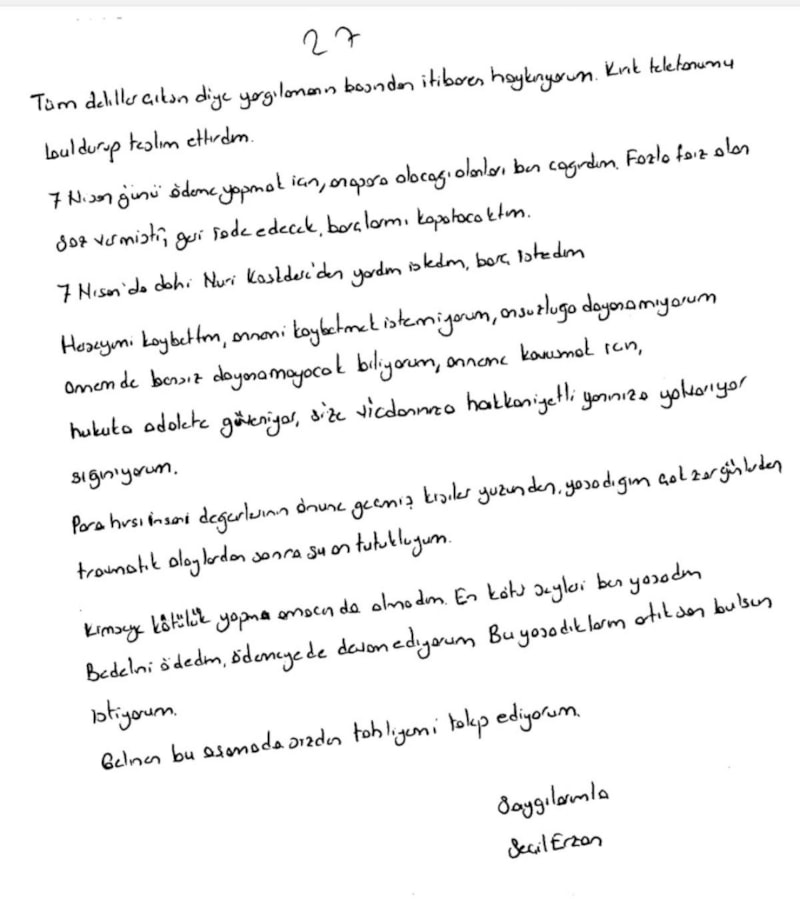 27
Tüm deliller çıksın diye yargılamanın başından itibaren haykırıyorum. Kırık telefonumu
buldurup teslim ettirdim.
7 Nisan günü ödeme yapmak için, anapara alacağı olanları ben çağırdım. Fazla faiz alan
söz vermişti, geri iade edecek, borçlarımı kapatacaktım.
7 Nisan'da dahi Nuri 'den yardım istedim, borç istedim
Herşeyimi kaybettim, annemi kaybetmek istemiyorum, onsuzluğa dayanamıyorum
annem de bensiz dayanamayacak biliyorum, anneme kavuşmak için,
hukuka adalete güveniyor, size vicdanınıza hakkaniyetli yanınıza yakarıyor
sığınıyorum.
Para hırsı insani değerlerinin önüne geçmiş kişiler yüzünden, yaşadığım çok zor günlerden
travmatik olaylardan sonra şu an tutukluyum.
Kimseye kötülük yapma amacında olmadım. En kötü şeyleri ben yaşadım
Bedelini ödedim, ödemeye de devam ediyorum Bu yaşadıklarım artık son bulsun
istiyorum.
Gelinen bu aşamada sizden tahliyemi talep ediyorum.
Saygılarımla
Seçil Erzan